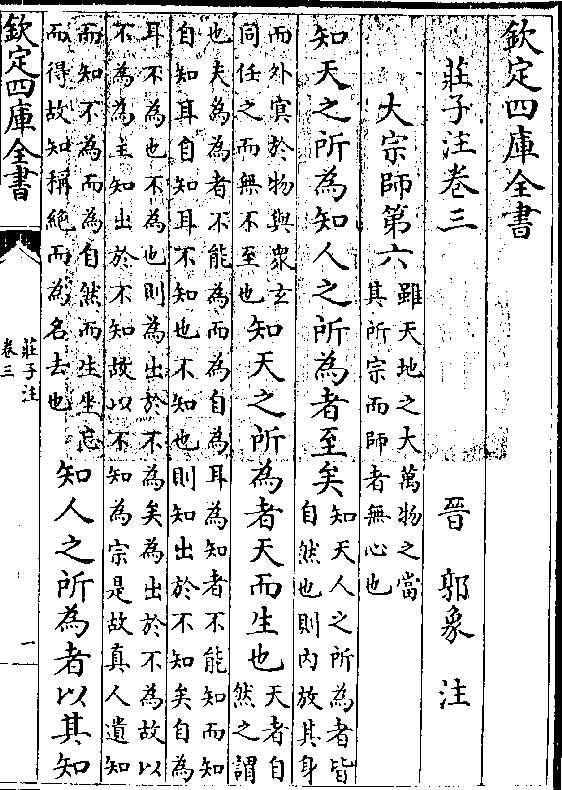 欽定四庫全書
莊子注卷三　晉　郭象　注
大宗師第六
雖天地之大萬物之當
其所宗而師者無心也
知天之所為知人之所為者至矣
知天人之所為者皆
自然也則内放其身
而外㝠於物與衆玄
同任之而無不至也
知天之所為者天而生也
天者自
然之謂
也夫為為者不能為而為自為耳為知者不能知而知
自知耳自知耳不知也不知也則知出於不知矣自為
耳不為也不為也則為出於不為矣為出於不為故以
不為為主知出於不知故以不知為宗是故真人遺知
而知不為而為自然而生坐忘
而得故知稱絶而為名去也
知人之所為者以其知
欽定四庫全書
莊子注
卷三
一